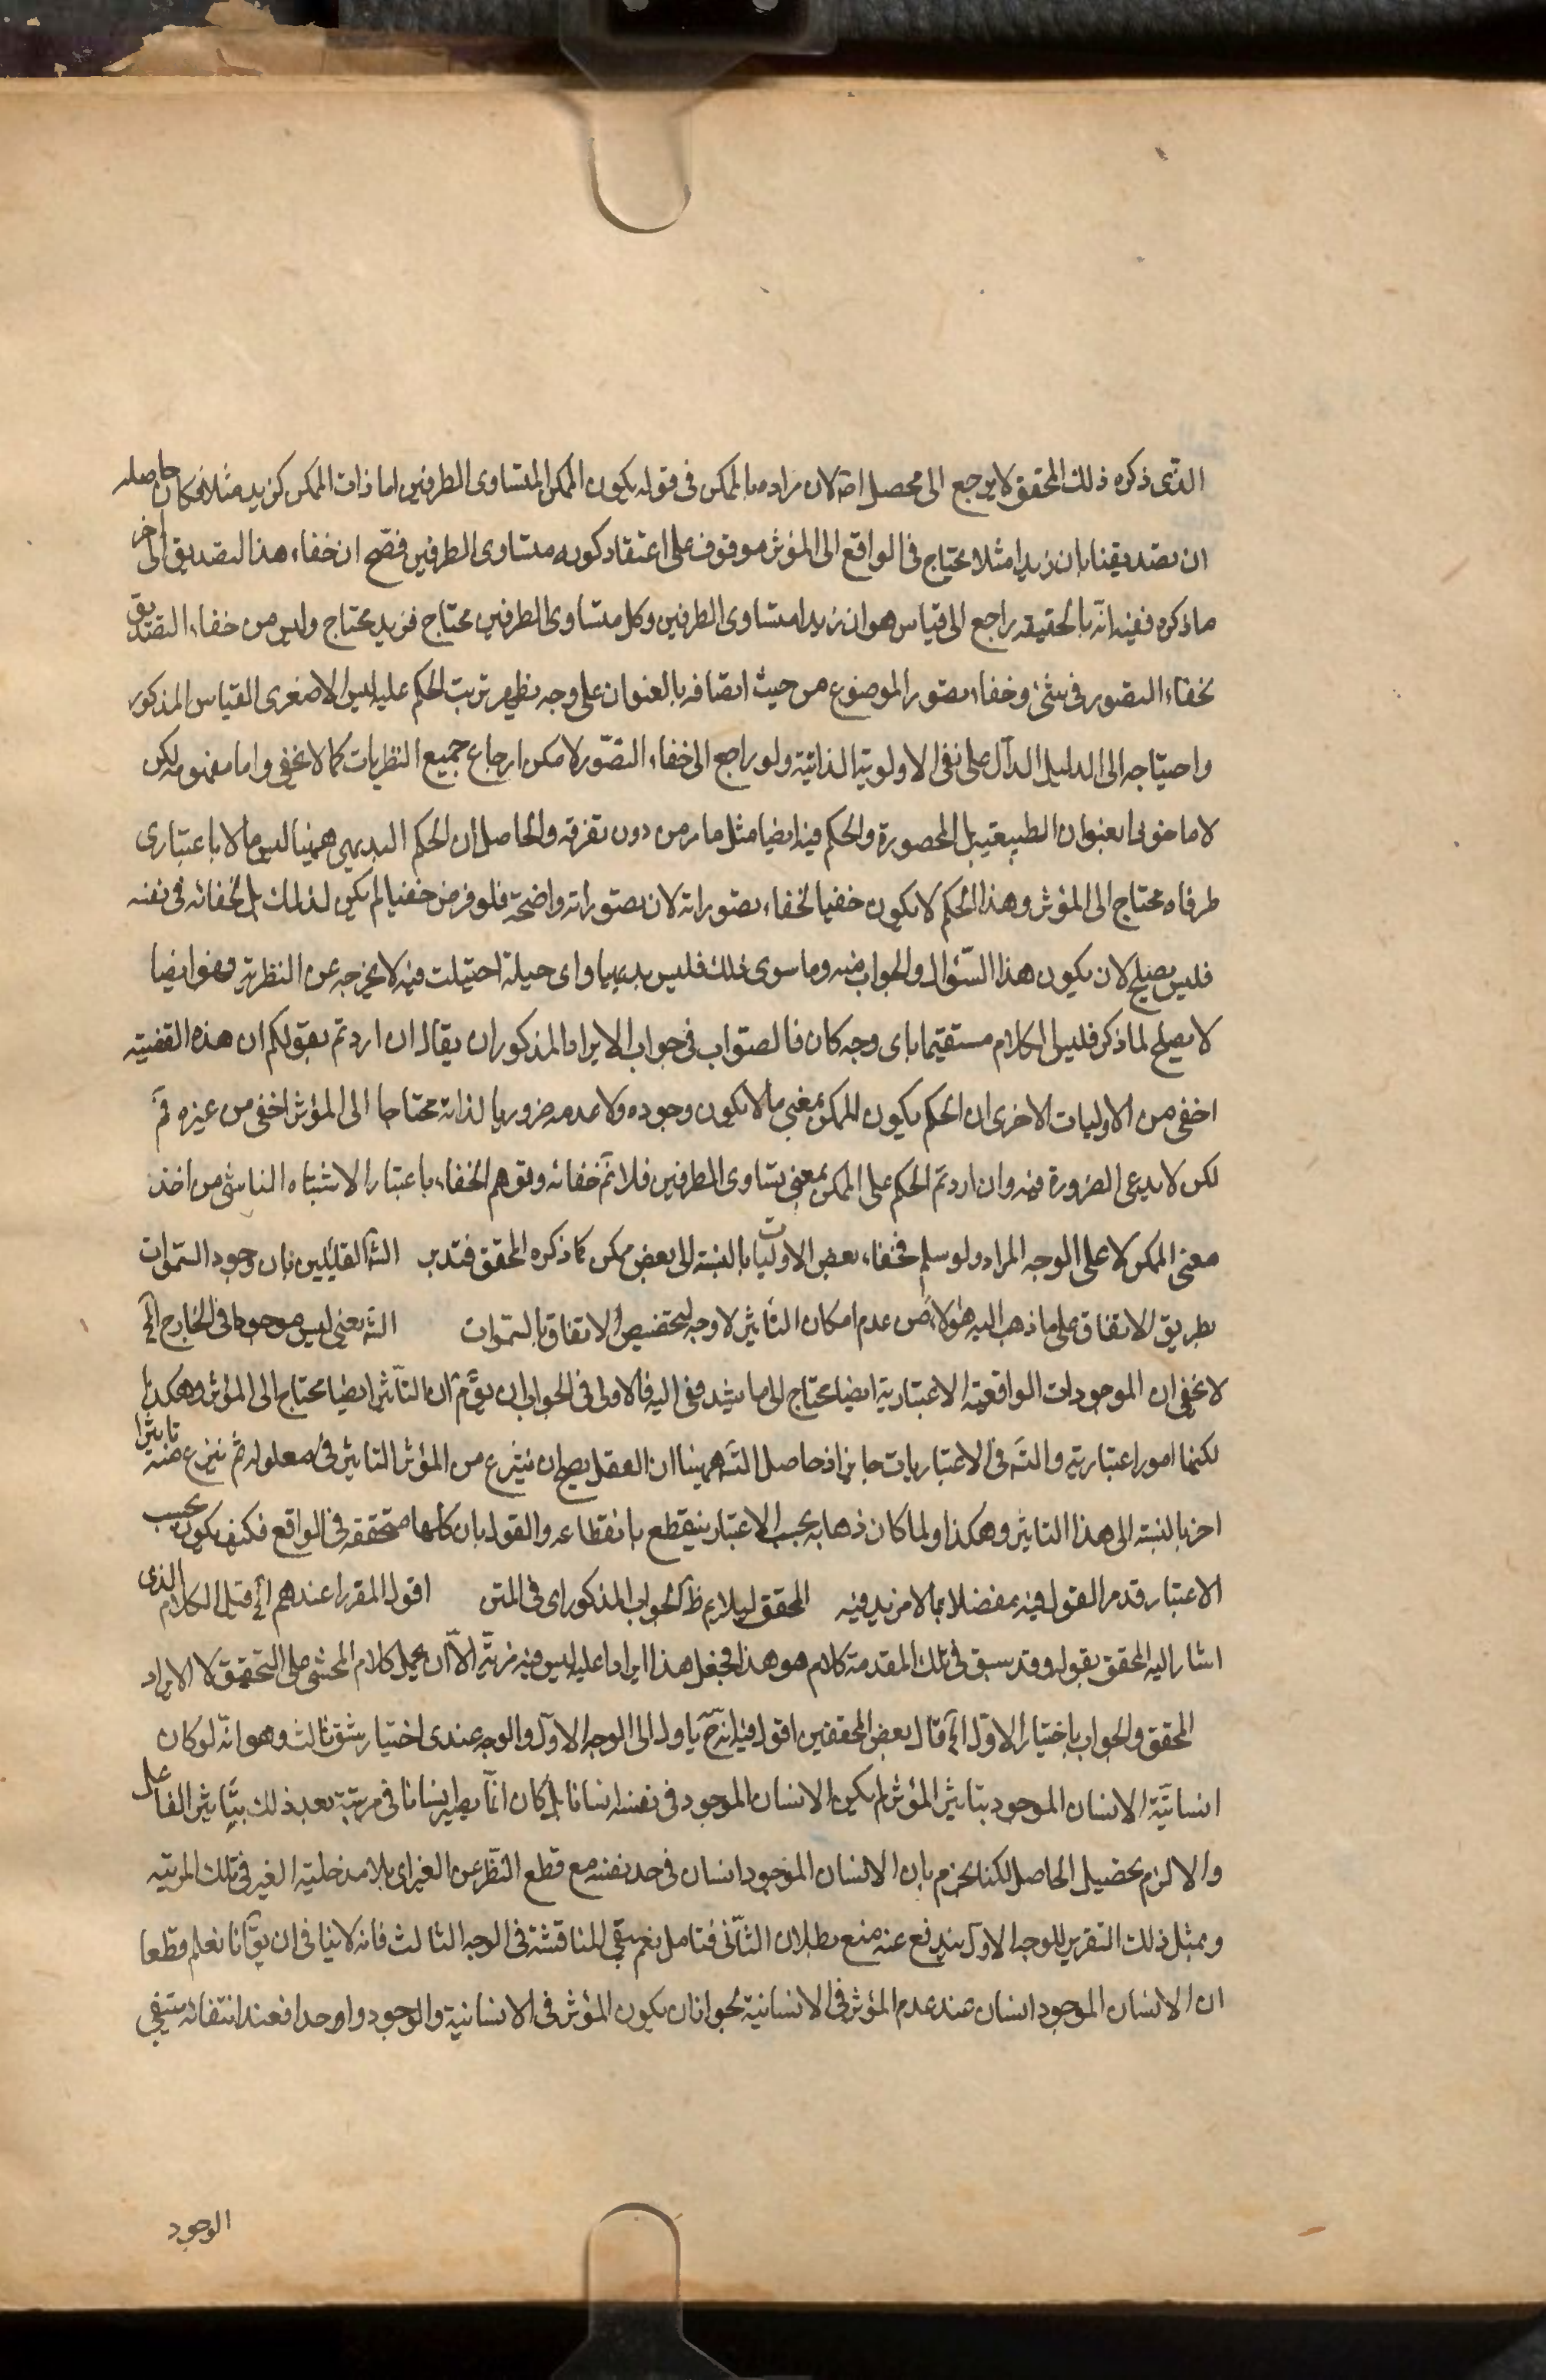 الذى ذكره ذلك المحقق لا يرجع الى محصل اصلا لان مراده بالممكن فى قوله يكون الممكن المتساوى الطرفين اما ذات الممكن كزيد مثلا فكان حاصله
ان تصديقنا بان زيدا مثلا محتاج فى الواقع الى المؤثر موقوف على اعتقاد كونه متساوى الطرفين فصح ان خفاء هذا التصديق الى اخر
ما ذكره ففيه انه بالحقيقه راجع الى قياس هو ان زيدا متساوى الطرفين وكل متساوى الطرفين محتاج فزيد محتاج وليس من خفاء التصديق
بخفاء التصور فى شئ وخفاء تصور الموضوع من حيث اتصافه بالعنوان على وجه يظهر ترتب الحكم عليه ليس الا صغرى القياس المذكور
واحتياجه الى الدليل الدال على نفى الاولوية الذاتية ولو راجع الى خفاء التصور لامكن ارجاع جميع النظريات كما لا يخفى واما مفهومه لكن
لا ماخوذا بعنوان الطبيعة بل المحصورة والحكم فيه ايضا مثل ما مر من دون تفرقه والحاصل ان الحكم البديهى ههنا ليس ما لا باعتبارى
طرفاه محتاج الى المؤثر وهذا الحكم لا يكون خفيا لخفاء تصوراته لان تصوراته واضحة فلو فرض خفيا لم يكن لذلك بل لخفائه فى نفسه
فليس يصلح لان يكون هذا السؤال والجواب فيه وما سوى ذلك فليس بديهيا واى حيلة احتيلت فيه لا يخرجه عن النظرية وهو ايضا
لا يصلح لما ذكر فليس الكلام مستقيما باى وجه كان فالصواب فى جواب الايراد المذكور ان يقال ان اردتم بقولكم ان هذه القضية
اخفى من الاوليات الاخرى ان الحكم بكون الممكن بمعنى ما لا يكون وجوده ولا عدمه ضروريا لذاته محتاجا الى المؤثر اخفى من غيره فم
لكن لا يدعى الضرورة فيه وان اردتم الحكم على الممكن بمعنى تساوى الطرفين فلا نم خفائه وتوهم الخفاء باعتبار الاشتباه الناشى من اخذ
معنى الممكن لا على الوجه المراد ولو سلم فخفاء بعض الاوليات بالنسبة الى بعض ممكن كما ذكره المحقق فتدبر الش القائلين بان وجود السموات
بطريق الاتفاق على ما ذهب اليه هؤلاء من عدم امكان التاثير لا وجه لتخصيص الاتفاق بالسموات الش يعنى ليس موجودا فى الخارج الخ
لا يخفى ان الموجودات الواقعية الاعتبارية ايضا محتاج الى ما يستند فى اليه فالاولى فى الجواب ان يقم ان التاثير ايضا محتاج الى المؤثر وهكذا
لكنها امور اعتبارية والتس فى الاعتباريات جايز اذ حاصل التس ههنا ان العقل يصح ان ينتزع من المؤثر التاثير فى معلوله ثم ينتزع منه تاثيرا
اخر بالنسبة الى هذا التاثير وهكذا ولما كان ذهابه بحسب الاعتبار ينقطع بانقطاعه والقول بان كلها متحققه فى الواقع فكيف يكون بحسب
الاعتبار قد مر القول فيه مفصلا بما لا مزيد فيه المحقق ليلايم ظ الجواب المذكور اى فى المتن اقول المقرر عندهم الخ قبل الكلام الذى
اشار اليه المحقق بقوله وقد سبق فى تلك المقدمة كلام هو هذا فجعل هذا ايرادا عليه ليس فيه مزية الا ان يحمل كلام المحشى على التحقيق لا الايراد
المحقق والجواب باختيار الاول الخ قال بعض المحققين اقول فيه انه ح ياول الى الوجه الاول والوجه عندى اختيار شق ثالث وهو انه لو كان
انسانية الانسان الموجود بتاثير المؤثر لم يكن الانسان الموجود فى نفسه انسانا بل كان انما يصير انسانا فى مرتبة بعد ذلك بتاثير الفاعل
والا لزم تحصيل الحاصل لكنا نجزم بان الانسان الموجود انسان فى حد نفسه مع قطع النظر عن الغير اى بلا مدخلية الغير فى تلك المرتبه
وبمثل ذلك التقرير للوجه الاول يندفع عنه منع بطلان الثانى فتامل نعم يبقى المناقشة فى الوجه الثالث فانه لا ينافى ان يق انا نعلم قطعا
ان الانسان الموجود انسان عند عدم المؤثر فى الانسانية لجواز ان يكون المؤثر فى الانسانية والوجود واحدا فعند انتفائه ينتفى
الوجود